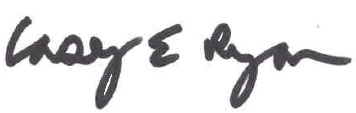 Casey E Ryan